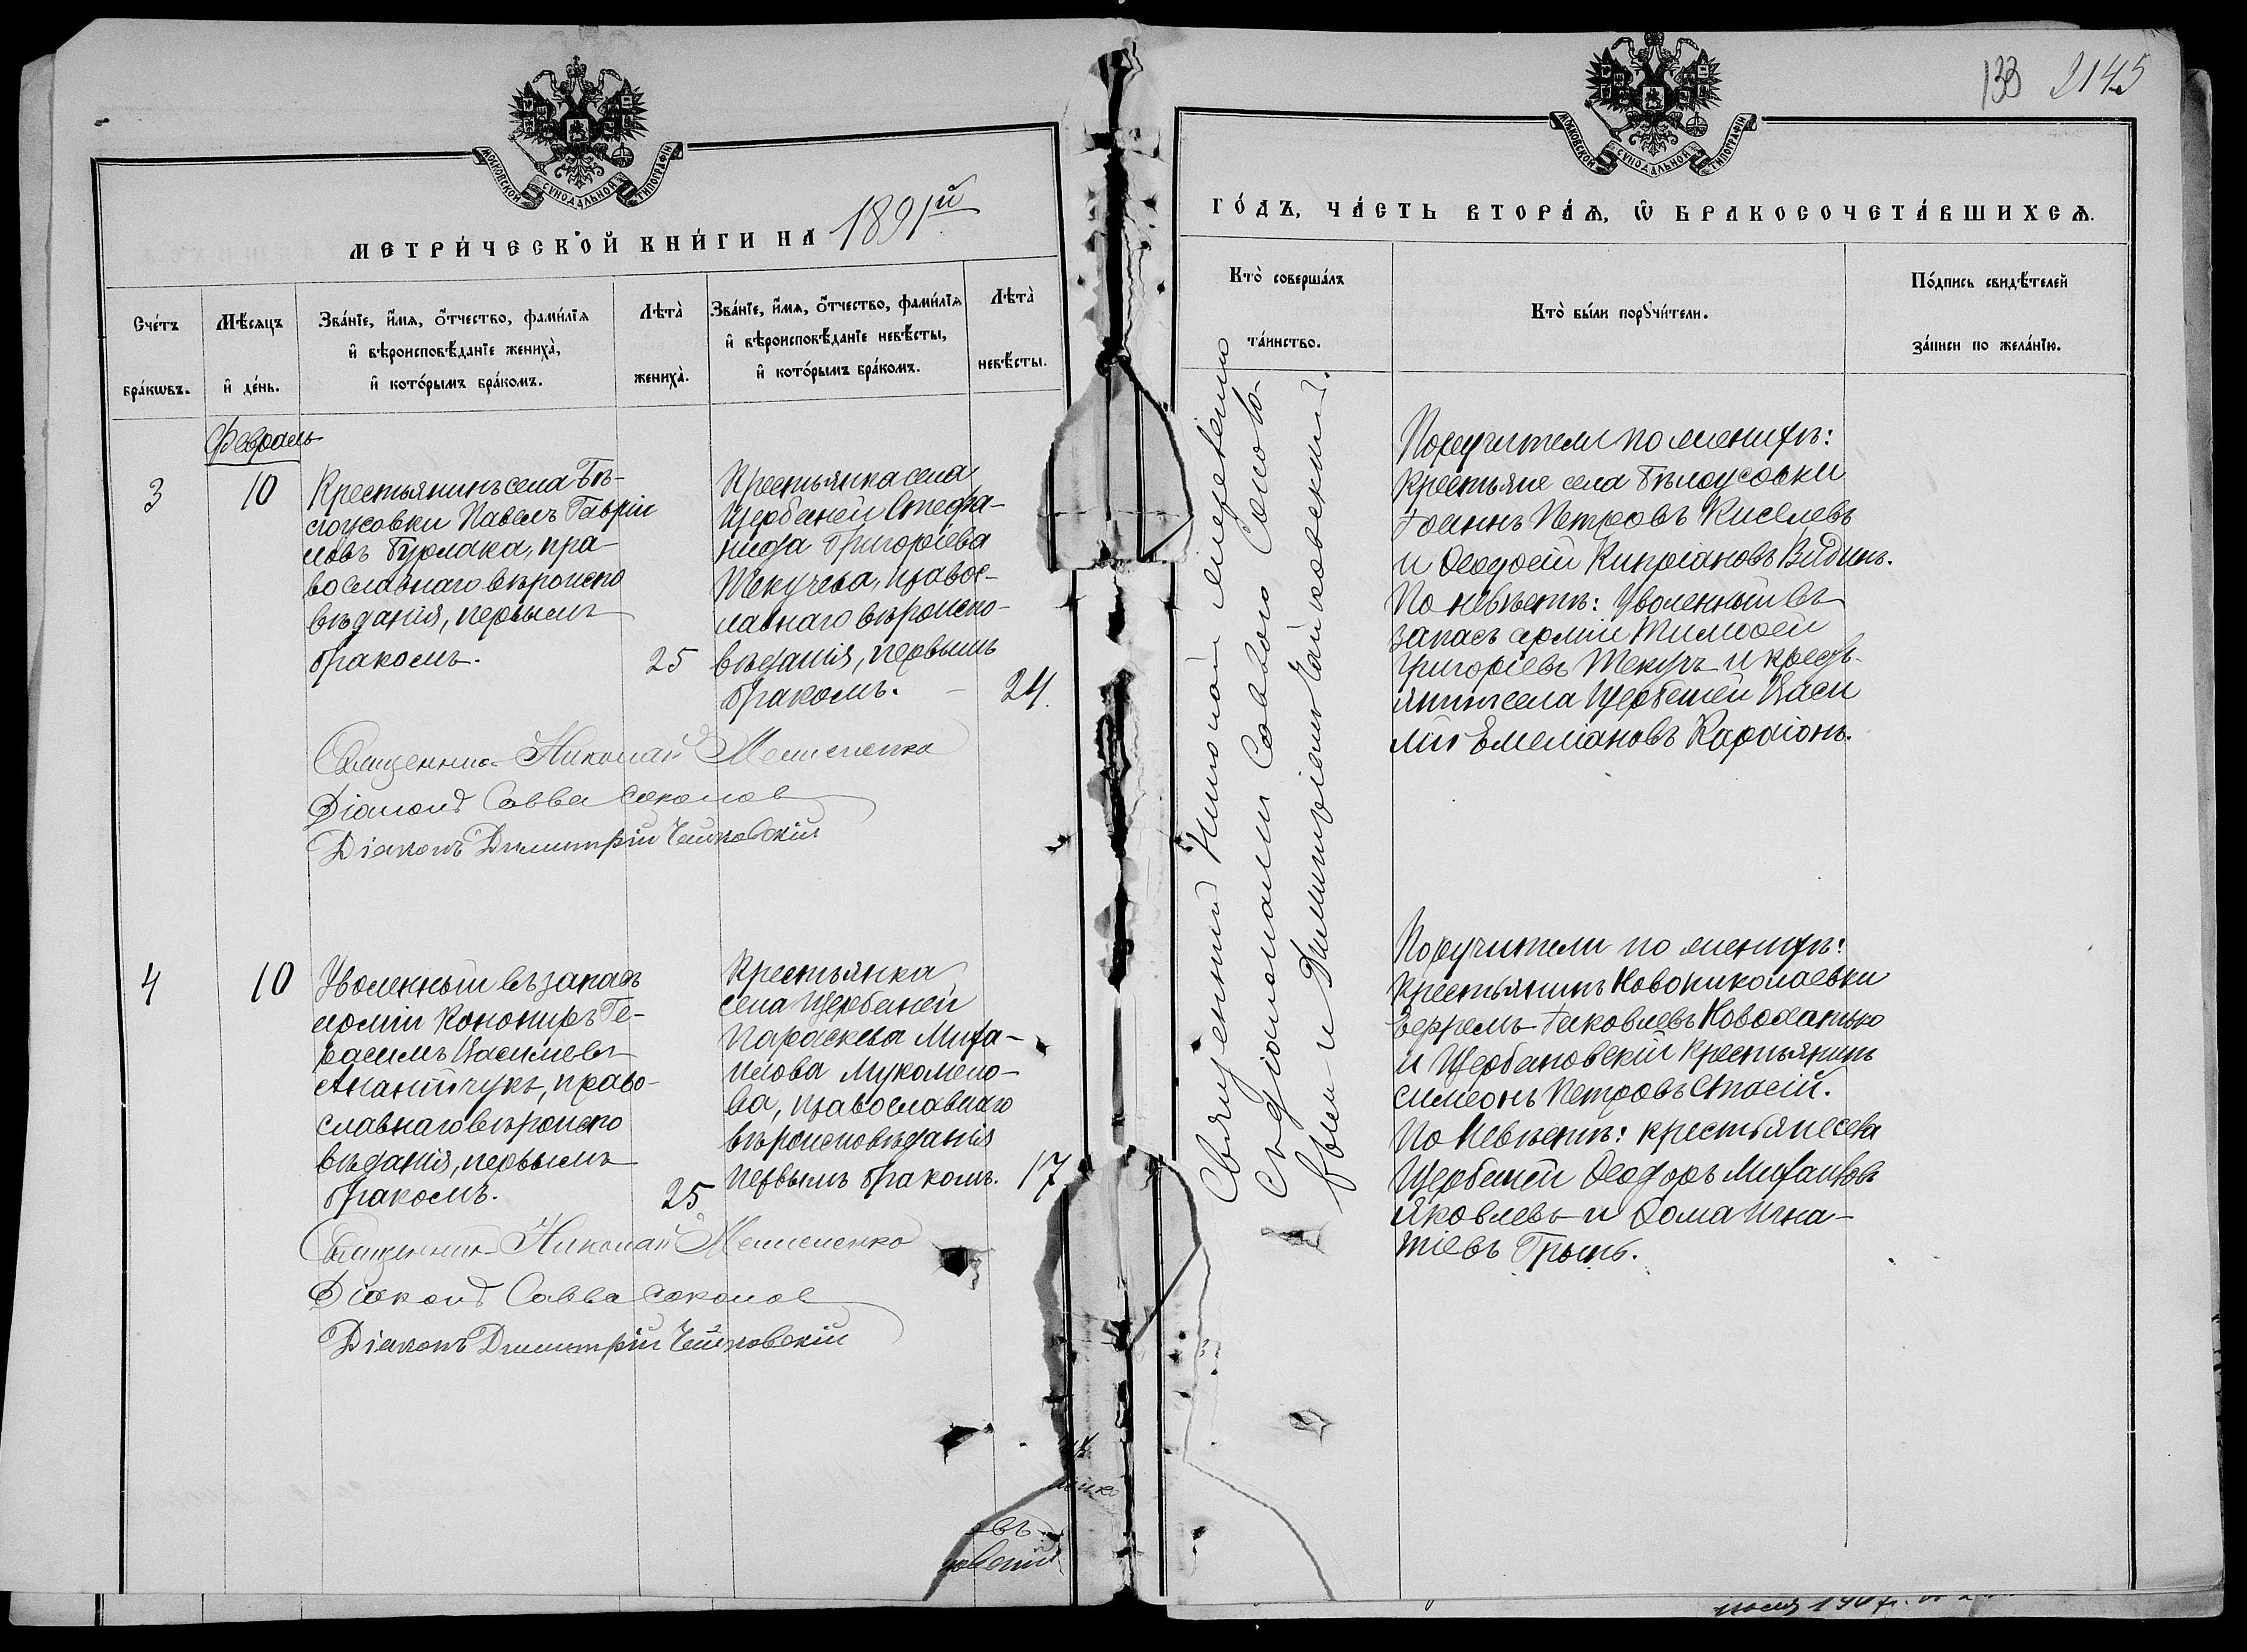 133 2145
МОСКОВСКОЙ СѴНОДАЛЬНОЙ ТИПОГРАФІИ
МЕТРИ́ЧЕСКОЙ КНИ́ГИ НА 1891й
Сче́тъ бра́кѡвъ.
Мѣ́сяцъ и҆ де́нь.
Зва́нїе, и҆́мѧ, ѻ҆́тчество, фами́лїѧ
и҆ вѣроисповѣ́данїе жениха̀,
и҆ кото́рымъ бра́комъ.
Лѣта̀ жениха̀.
Зва́нїе, и҆́мѧ, ѻ҆́тчество, фами́лїѧ
и҆ вѣроисповѣ́данїе невѣ́сты,
и҆ кото́рымъ бра́комъ.
Лѣта̀ невѣ́сты.
Февраль
3
10
Крестьянинъ села Бѣ-
лоусовки Павелъ Гаврiи
ловъ Бурлака, пра-
вославнаго вѣроиспо
вѣданiя, первымъ
бракомъ.
25
Крестьянка села
Щербаней Стефа-
нида Григорiева
Текучева, правос-
лавнаго вѣроиспо-
вѣданiя, первымъ
бракомъ. –
24.
Священникъ Николай
Дiаконъ Савва Соколов
Дiаконъ Димитрiй Чайковскiй
4
10
Уволенный въ запасъ
армiи Канониръ Ге-
расимъ Васильевъ
право-
славнаго вѣроиспо
вѣданiя, первымъ
бракомъ.
25
Крестьянка
села Щербаней
Параскева Миха-
илова Мукомело-
ва, православнаго
вѣроисповѣданiя
первымъ бракомъ.
17
Священникъ Николай
Дiаконъ Савва Соколов
Дiаконъ Димитрiй Чайковскiй
МОСКОВСКОЙ СѴНОДАЛЬНОЙ ТИПОГРАФІИ
ГО́ДЪ, ЧА́СТЬ ВТОРА́Ѧ, Ѡ҆ БРАКОСОЧЕТА́ВШИХСѦ.
Кто̀ соверша́лъ
та́инство.
Кто̀ бы́ли порꙋчи́тели.
По́дпись свидѣ́телей
за́писи по жела́нїю.
Священникъ Николай
съ дiаконами Саввою Соколо-
вым и Димитрiемъ Чайковскимъ.
Поручители по женихѣ:
Крестьяне села Бѣлоусовки
Іоаннъ Петровъ Киселевъ
и Ѳеодосiй Кипрiановъ
По невѣстѣ: Уволенный въ
запасъ армiи Тимоѳей
Григорiевъ Текучъ и крестъ-
янинъ села Щербаней Васи
лiй Емелiановъ
Поручители по женихѣ:
Крестьянинъ Новониколаевки
Ефремъ Іаковлевъ
и Щербановскiй крестьянинъ
Симеонъ Петровъ
По невѣстѣ: крестьяне села
Щербаней Ѳеодоръ Михаиловъ
Яковлевъ и Ѳома Игна-
тiевъ